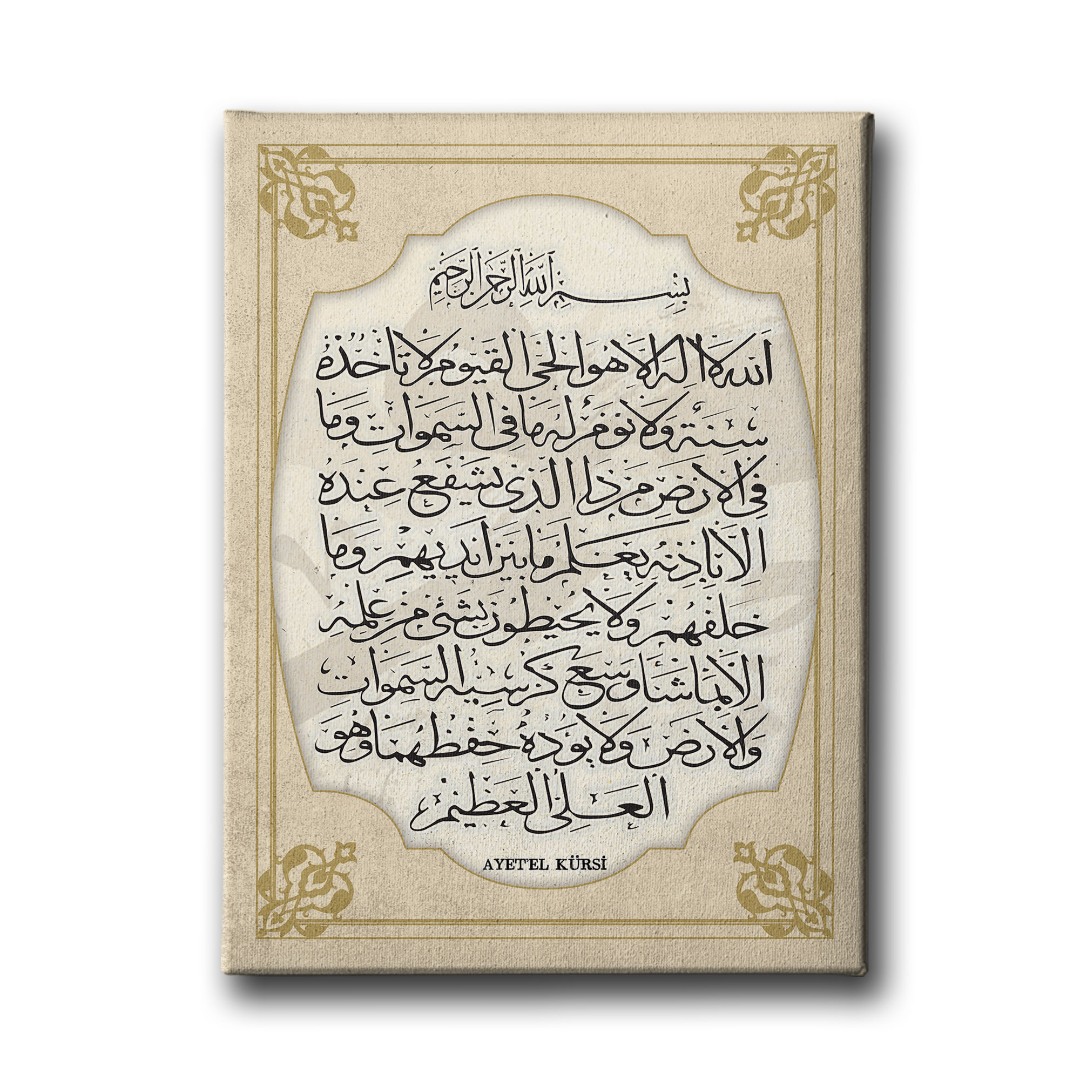 بِسْمِ اللهِ الرَّحْمٰنِ الرَّحِيمِ
اَللهُ لَا اِلٰهَ اِلَّا هُوَ الْحَيُّ الْقَيُّومُ لَا تَأْخُذُهُ
سِنَةٌ وَلَا نَوْمٌ لَهُ مَا فِي السَّمٰوَاتِ وَمَا
فِي الْاَرْضِ مَنْ ذَا الَّذِي يَشْفَعُ عِنْدَهُ
اِلَّا بِاِذْنِهِ يَعْلَمُ مَا بَيْنَ اَيْدِيهِمْ وَمَا
خَلْفَهُمْ وَلَا يُحِيطُونَ بِشَيْءٍ مِنْ عِلْمِهِ
اِلَّا بِمَا شَاءَ وَسِعَ كُرْسِيُّهُ السَّمٰوَاتِ
وَالْاَرْضَ وَلَا يَؤُدُهُ حِفْظُهُمَا وَهُوَ
الْعَلِيُّ الْعَظِيمُ
AYETEL KÜRSİ